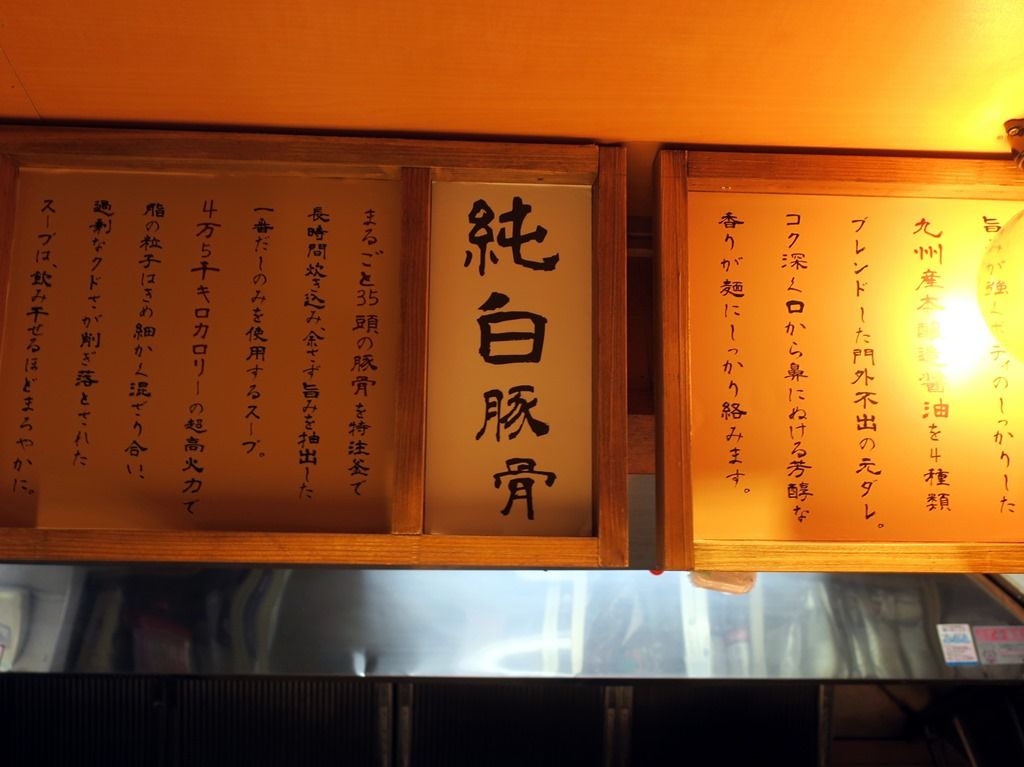 純白豚骨
まるごと35頭の豚骨を特注釜で
長時間炊き込み、余さず旨みを抽出した
一番だしのみを使用するスープ。
4万5千キロカロリーの超高火力で
脂の粒子はきめ細かく混ざり合い、
過剰なクドさが削ぎ落とされた
スープは、飲み干せるほどまろやかに。
旨みが強くボディのしっかりした
九州産本醸造醤油を4種類
ブレンドした門外不出の元ダレ。
コク深く口から鼻にぬける芳醇な
香りが麺にしっかり絡みます。